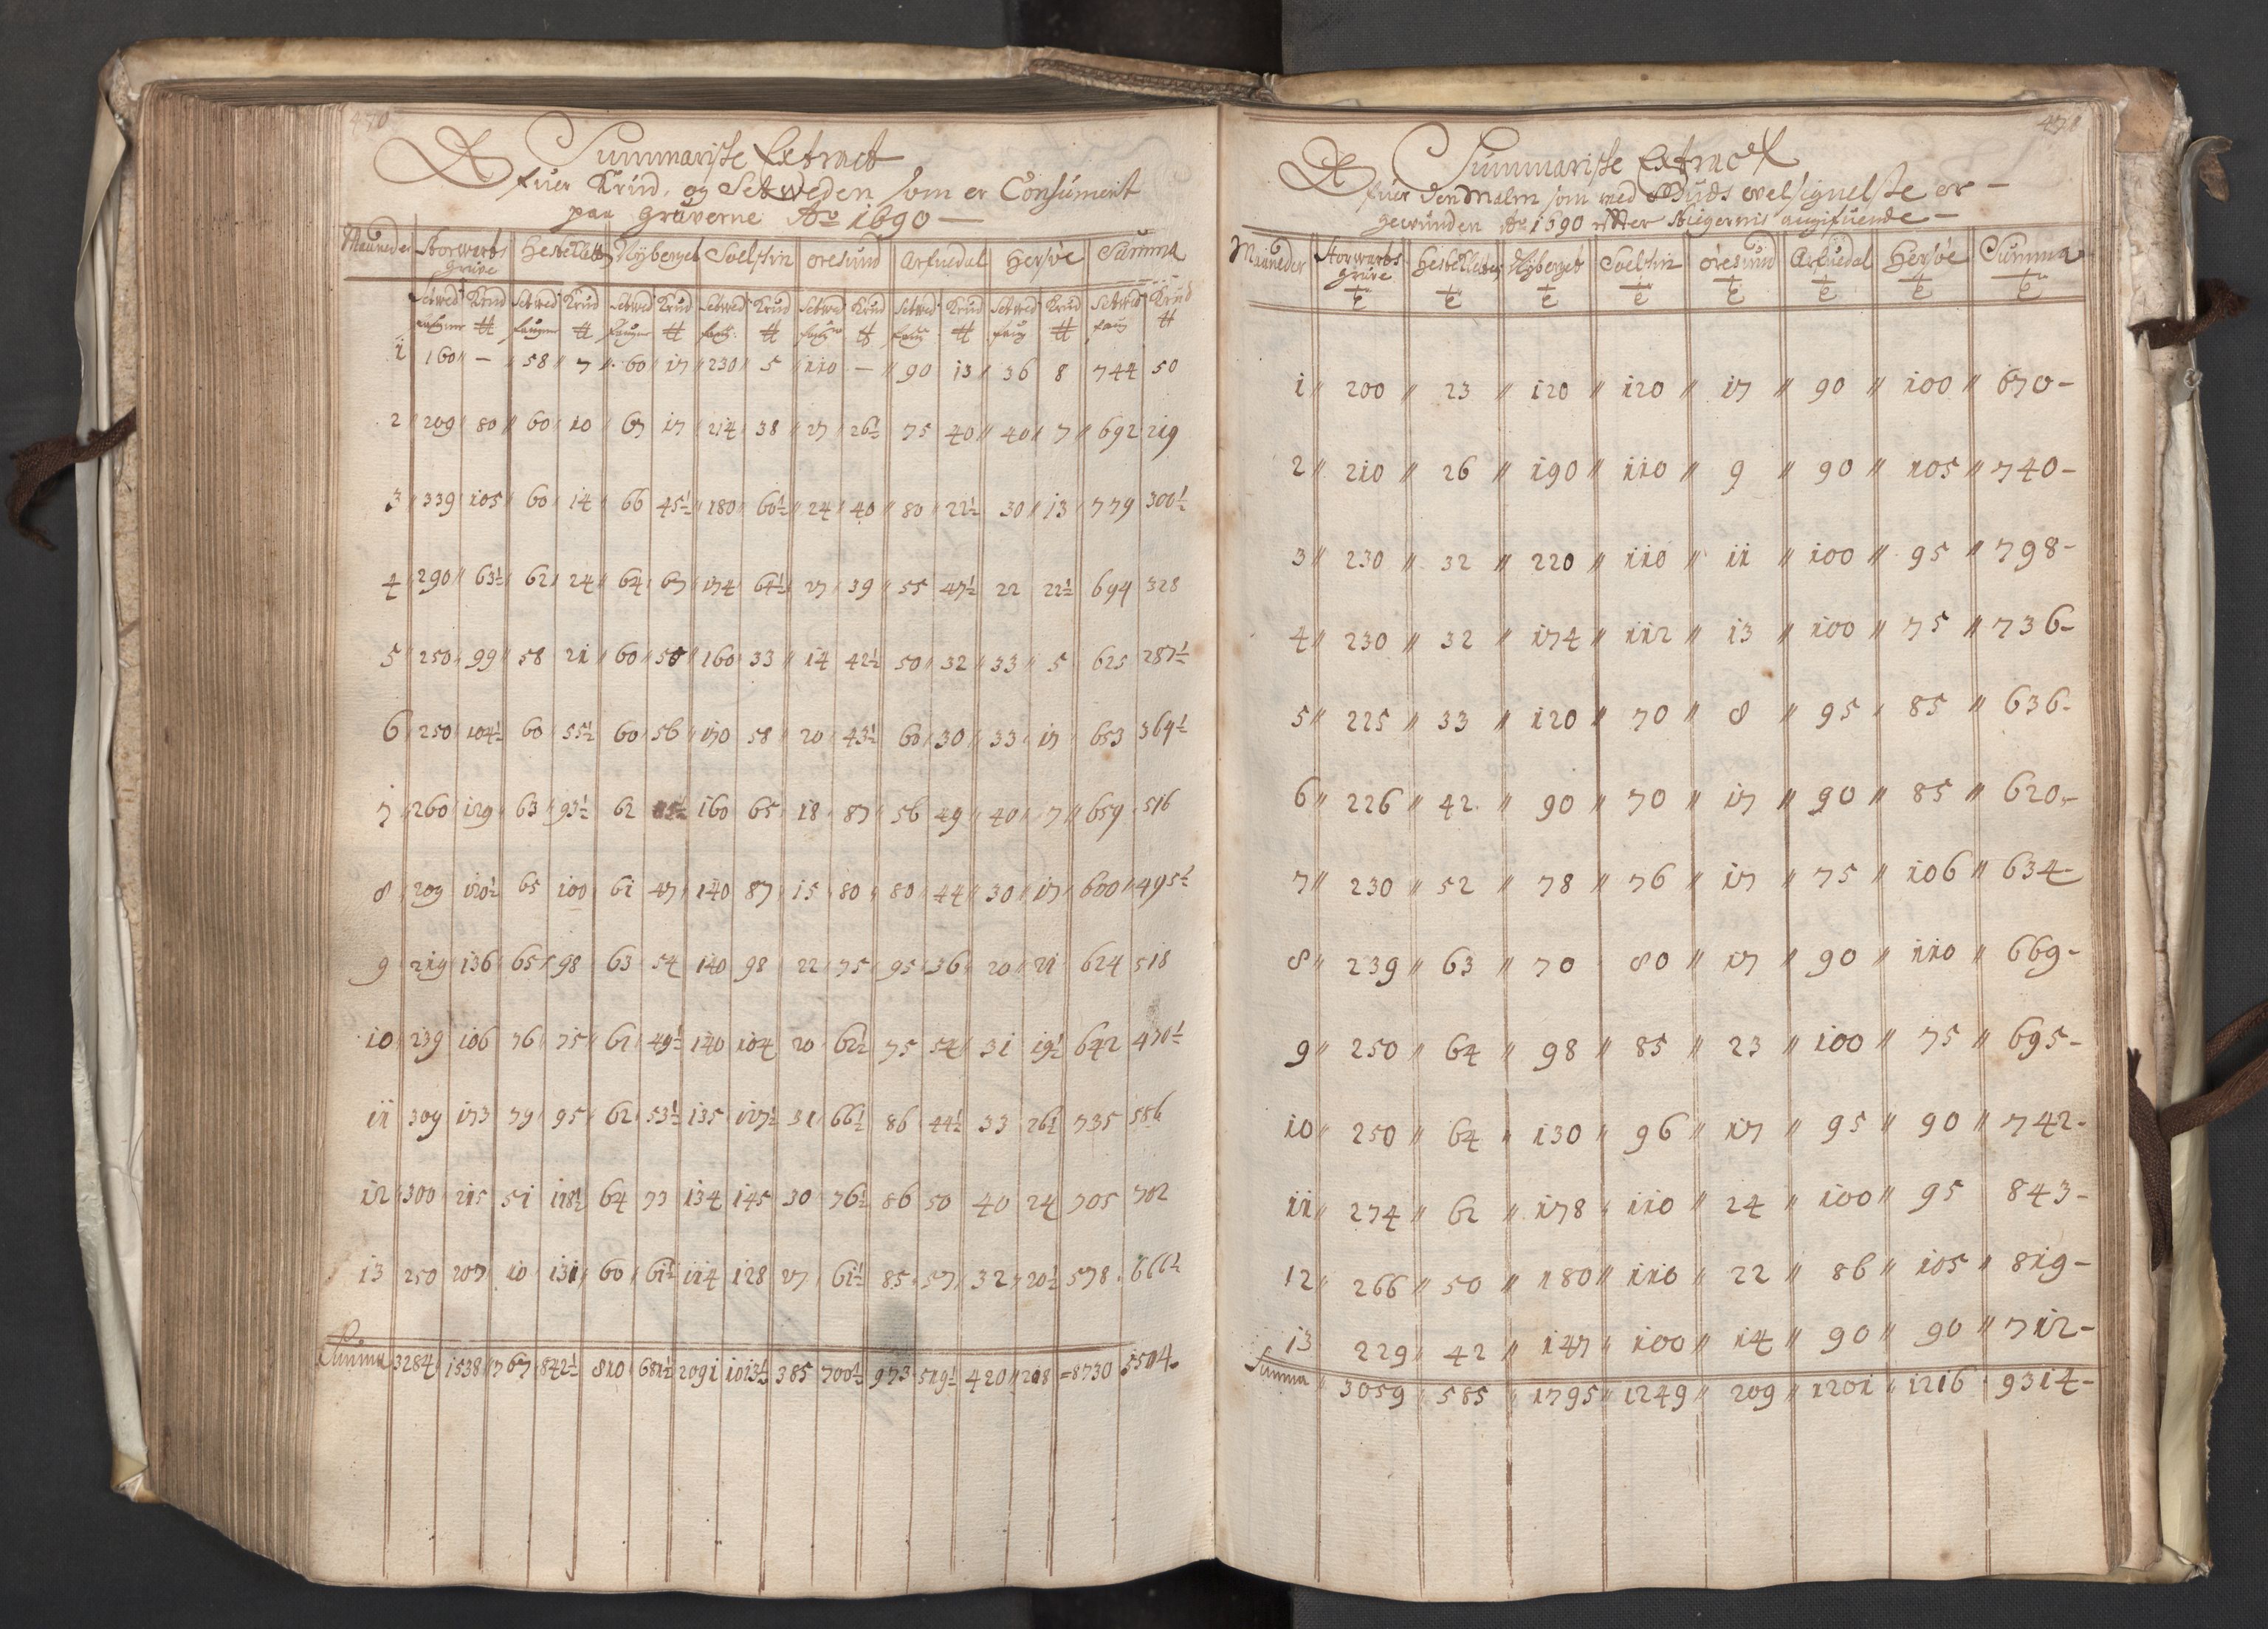 470
Summariske Extract
Ofuer Krud, og Setweden som er Consumert
paa Gruverne Ao 1690 —
Maaneder Storwarts Grufve Hestkletten Nyberget Soelskin Øresund Arfuedal Hersøe Summa
Setwed Krud Setwed Krud Setwed Krud Setwed Krud Setwed Krud Setwed Krud Setwed Krud Setwed Krud
1 160 — 58 7 60 17 230 5 110 — 90 13 36 8 744 50
2 209 80 60 10 67 17 214 38 27 26½ 75 40 40 7 692 219
3 339 105 60 14 66 45½ 180 60½ 24 40 80 22½ 30 13 779 300½
4 290 63½ 62 24 64 67 174 64½ 27 39 55 47½ 22 22½ 694 328
5 250 99 58 21 60 50 160 33 14 42½ 50 32 33 5 625 287½
6 250 104½ 60 55½ 60 56 170 58 20 43½ 60 30 33 17 653 364½
7 260 129 63 93½ 62 160 65 18 87 56 49 40 7 659 516
8 209 120½ 65 100 61 47 140 87 15 80 80 44 30 17 600 495½
9 219 136 65 98 63 54 140 98 22 75 95 36 20 21 624 518
10 239 106 76 75 61 49½ 140 104 20 62½ 75 54 31 19½ 642 470½
11 309 173 79 95 62 53½ 135 127½ 31 66½ 86 44½ 33 26½ 735 586
12 300 215 51 118½ 64 73 134 145 30 76½ 86 50 40 24 705 702
13 250 207 10 131 60 61½ 114 128 27 61½ 85 57 32 20½ 578 666½
Summa 3284 1538 767 842½ 810 681½ 2091 1013½ 385 700½ 973 519½ 420 208 8730 5504
471
Summariske Extract
Ofuer den Malm som med Guds velsignelse er —
gewunden Ao 1690 efter Stigernis angifuende —
Maaneder Storwarts Grufve Hestkletten Nyberget Soelskin Øresund Arfuedal Hersøe Summa
1 200 23 120 120 17 90 100 670 —
2 210 26 190 110 9 90 105 740 —
3 230 32 220 110 11 100 95 798 —
4 230 32 174 112 13 100 75 736 —
5 225 33 120 70 8 95 85 636 —
6 226 42 90 70 17 90 85 620 —
7 230 52 78 76 17 75 106 634 —
8 239 63 70 80 17 90 110 669 —
9 250 64 98 85 23 100 75 695 —
10 250 64 130 96 17 95 90 742 —
11 274 62 178 110 24 100 95 843 —
12 266 50 180 110 22 86 105 819 —
13 229 42 147 100 14 90 90 712 —
Summa 3059 585 1795 1249 209 1201 1216 9314 —